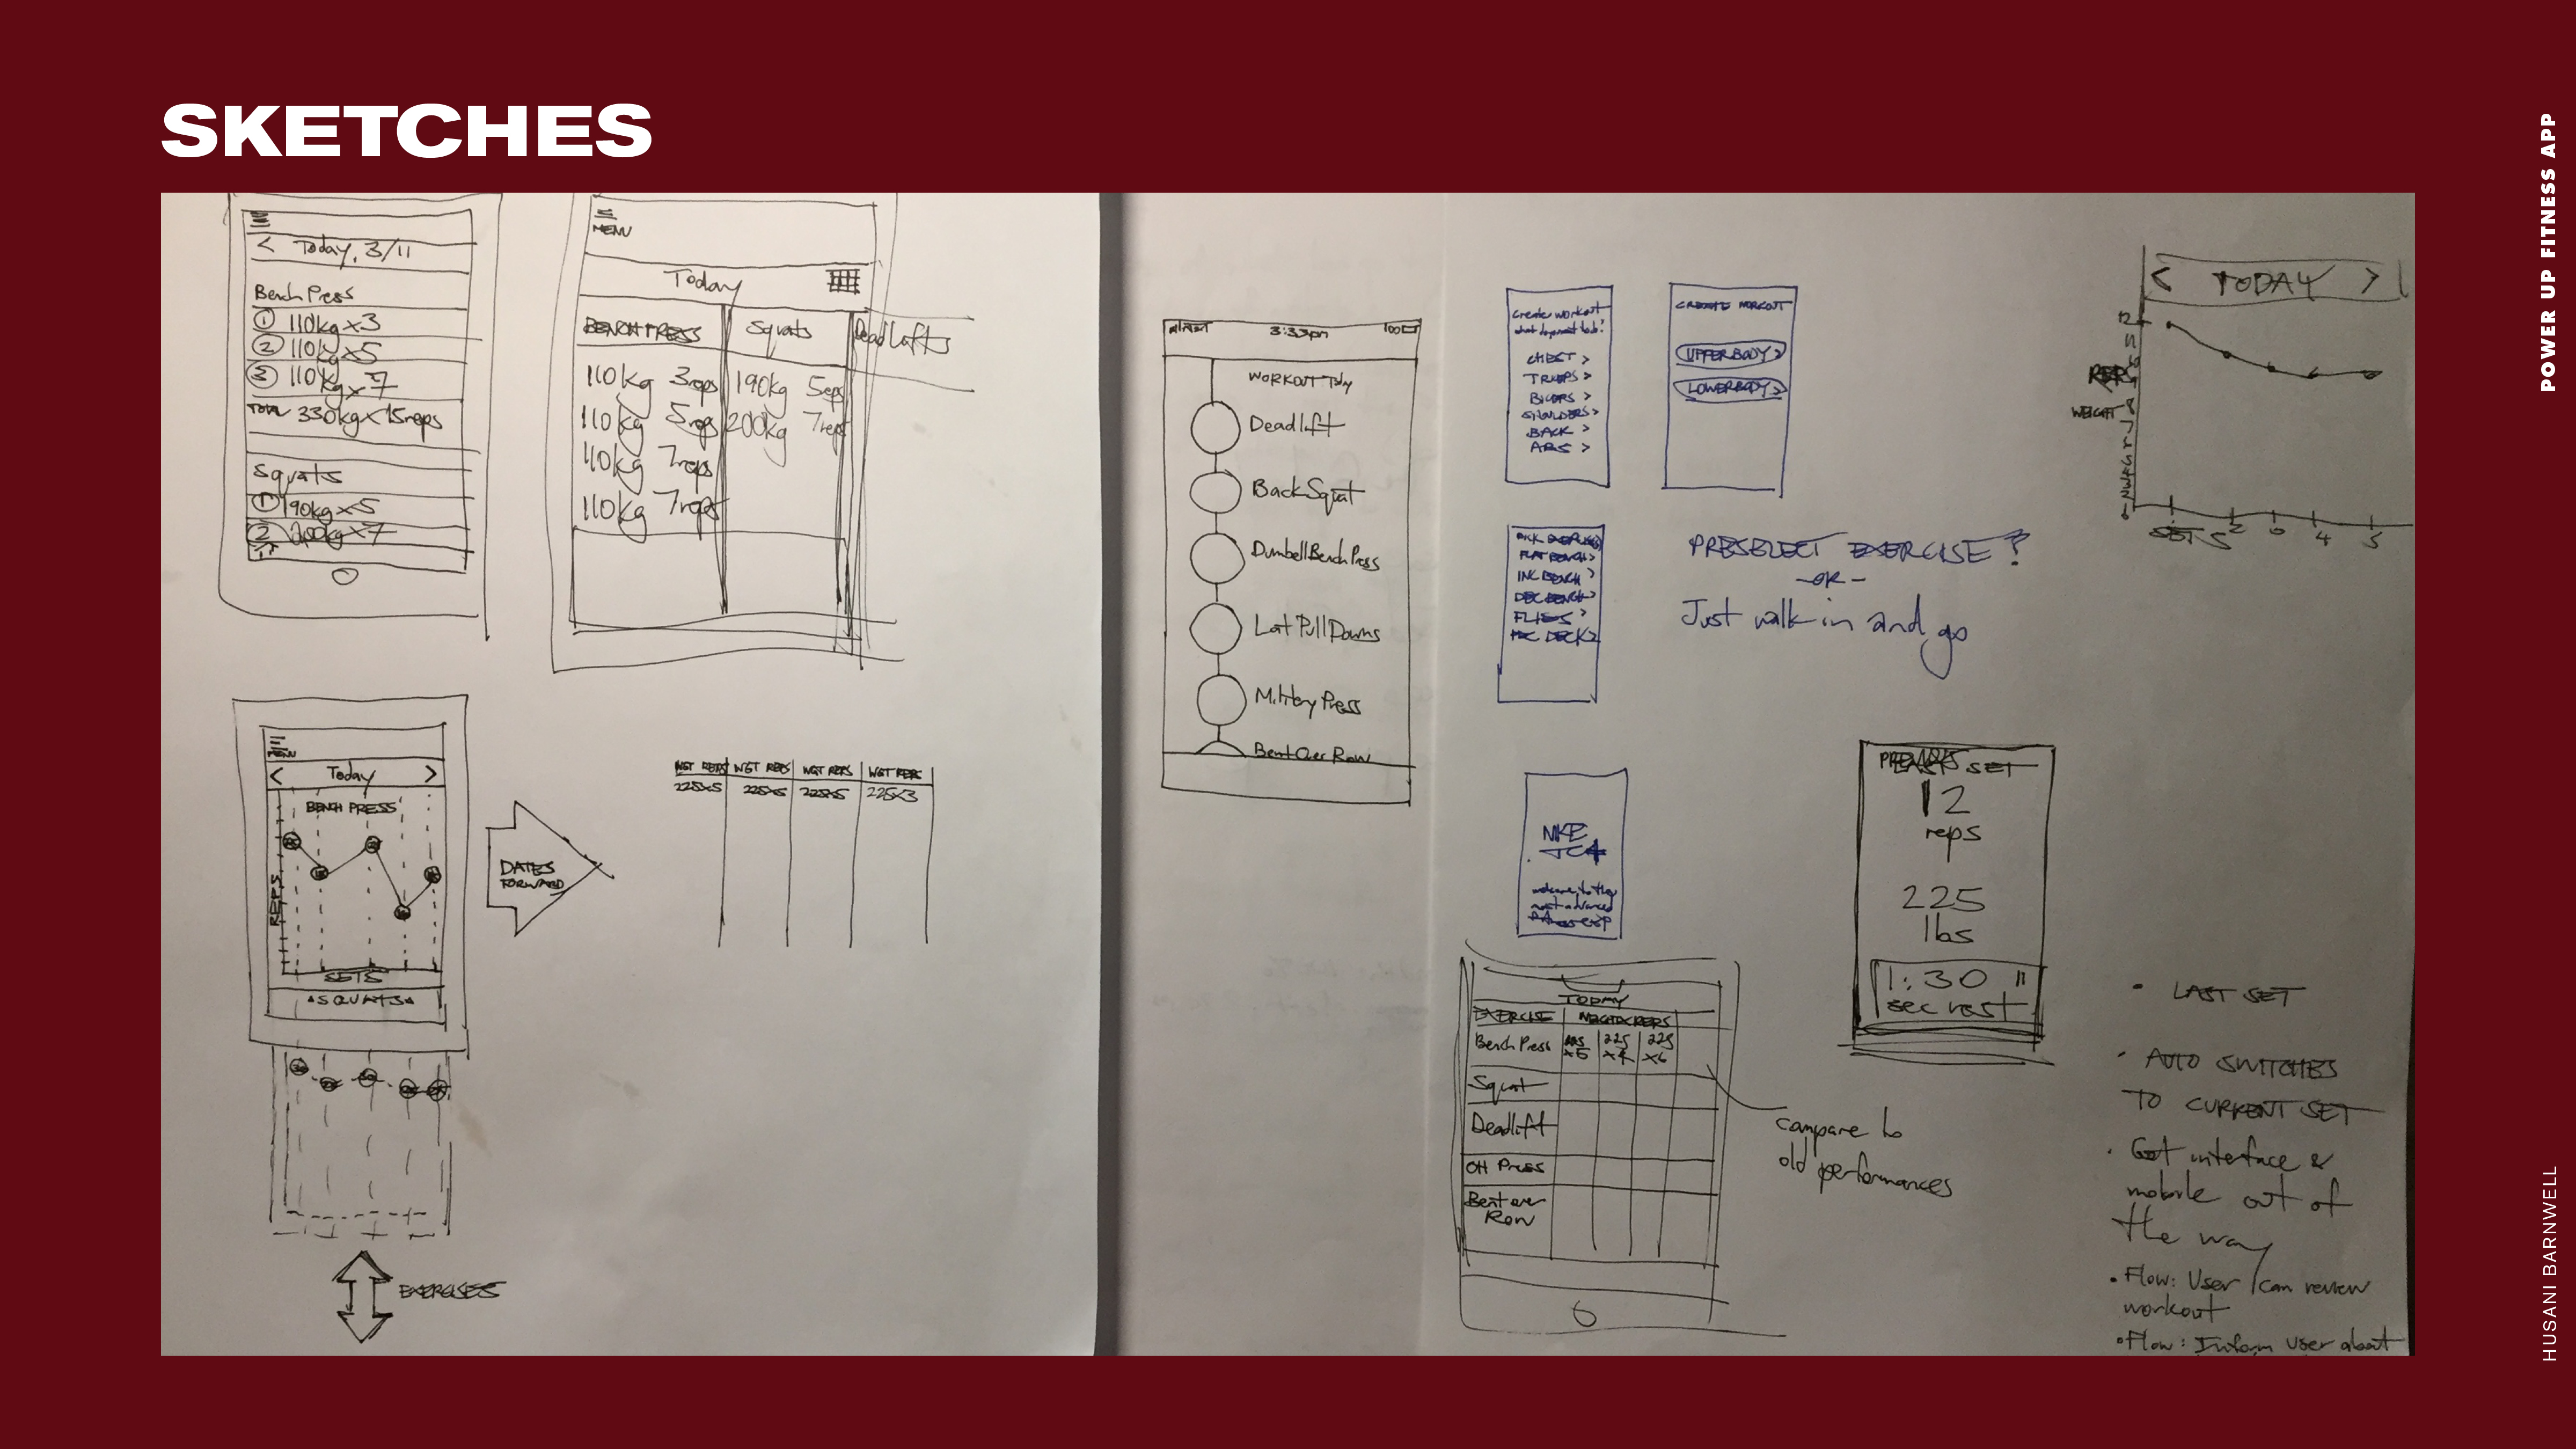 SKETCHES
POWER UP FITNESS APP
HUSANI BARNWELL
< Today, 3/11
Bench Press
① 110kg x 3
② 110kg x 5
③ 110kg x 7
Total 330kg x 15reps
Squats
① 190kg x 5
② 200kg x 7
MENU
Today
BENCH PRESS Squats Deadlifts
110kg 3reps 190kg 5reps
110kg 5reps 200kg 7reps
110kg 7reps
110kg 7reps
MENU
< Today >
BENCH PRESS
REPS
SETS
SQUATS
EXERCISES
DATES
FORWARD
WGT REPS WGT REPS WGT REPS WGT REPS
225x5 225x5 225x5 225x3
3:33pm
WORKOUT Tday
Deadlift
Back Squat
Dumbell Bench Press
Lat Pull Downs
Military Press
Bent Over Row
Create workout
CHEST >
TRICEPS >
BICEPS >
SHOULDERS >
BACK >
ABS >
CREATE WORKOUT
UPPERBODY >
LOWERBODY >
PICK EXERCISE
FLAT BENCH >
INC BENCH >
DEC BENCH >
FLIES >
PEC DECK >
PRESELECT EXERCISE?
-OR-
Just walk in and go
< TODAY >
REPS
WEIGHT
SETS 2 4 5
NIKE
welcome to the
most advanced
LAST SET
12
reps
225
lbs
1:30 "
sec rest
TODAY
EXERCISE WEIGHTxREPS
Bench Press 225 x5 225 x4 225 x6
Squat
Deadlift
OH Press
Bent over
Row
Compare to
old performances
• LAST SET
• AUTO SWITCHES
TO CURRENT SET
• Get interface &
mobile out of
the way
• Flow: User can review
workout
• Flow: Inform user about